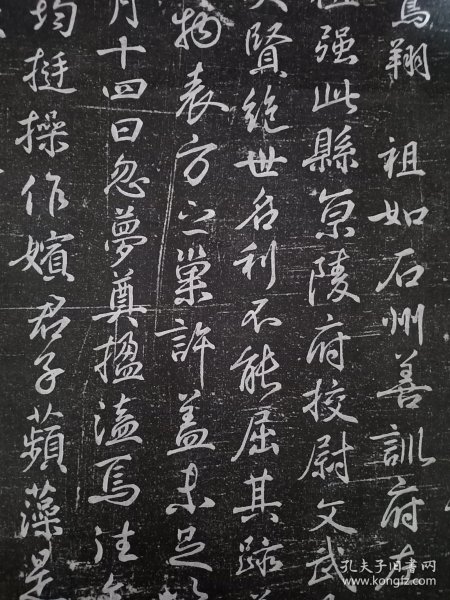 翔　祖如石州善訓府
祖强此縣原陵府校尉文武
賢絶世名利不能屈其跡
物表方之巢許蓋未足
月十四日忽夢奠楹溘焉注
均挺操作嬪君子蘋藻是
孔夫子旧书网
www.kongfz.com